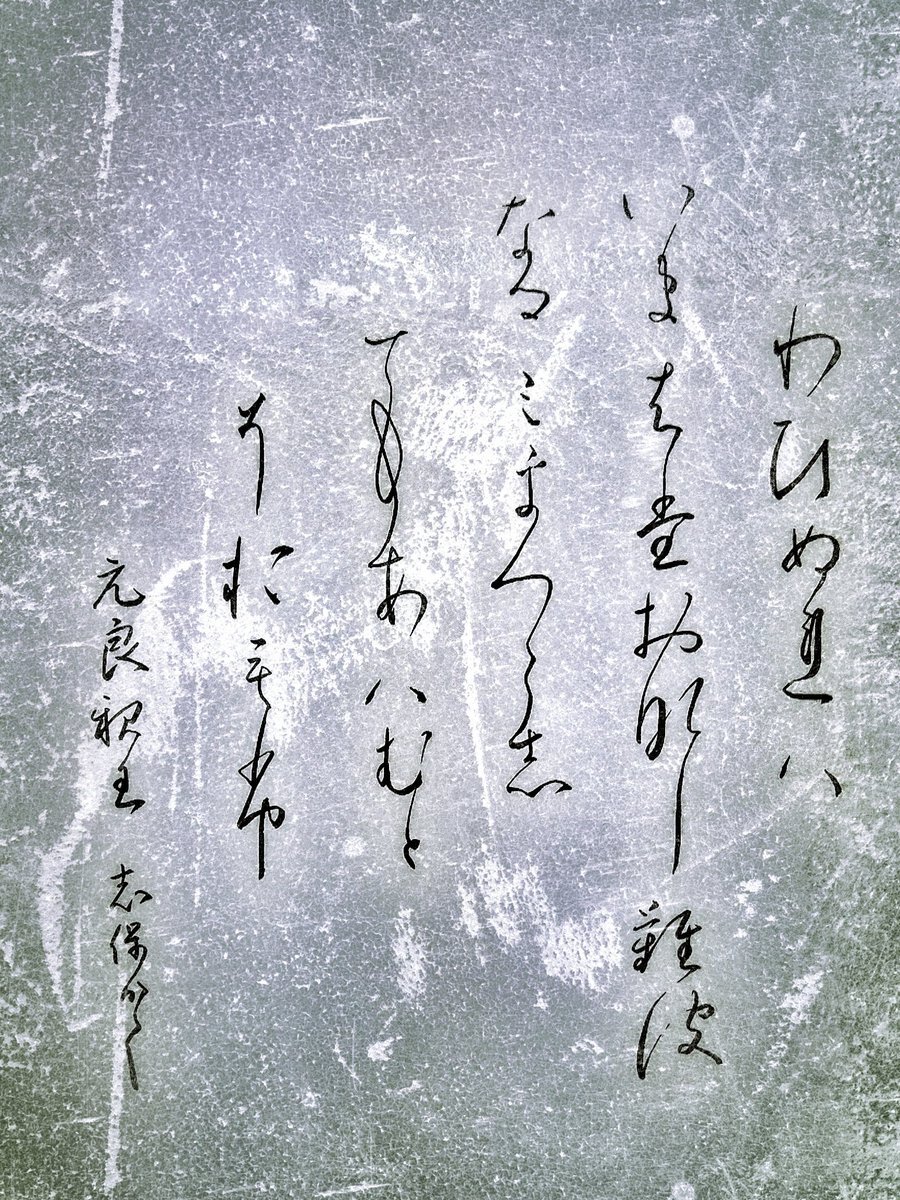 わひぬれハ
いまは堂おなし難波
なるミをつくし志
てもあハむと
そおもふ
元良親王 志保かく